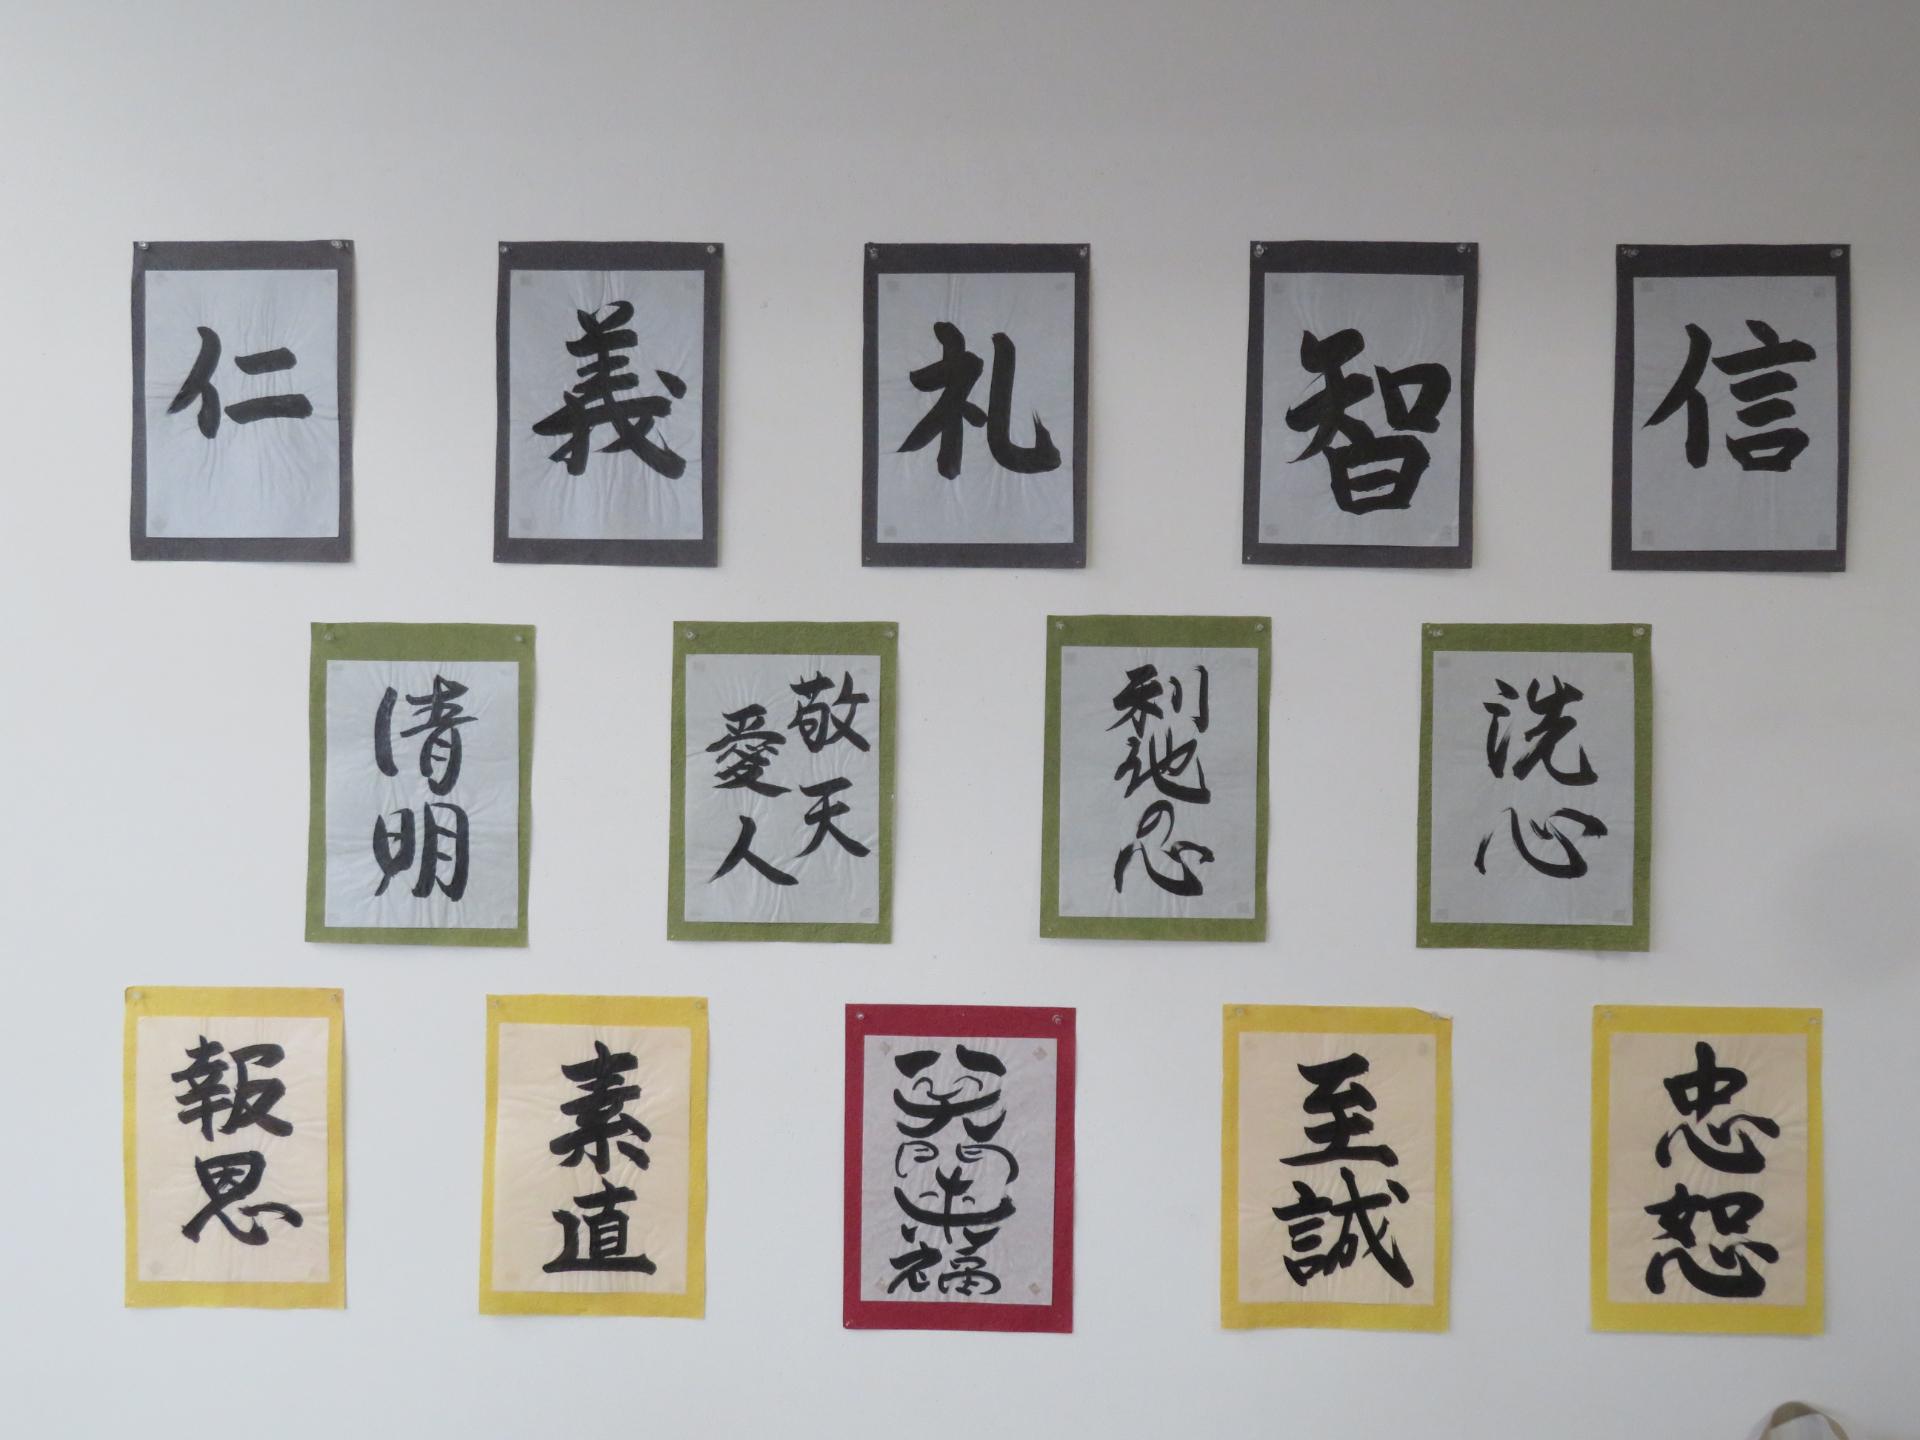 仁
義
礼
智
信
清明
敬天
愛人
利他の心
洗心
報恩
素直
笑門来福
至誠
忠恕